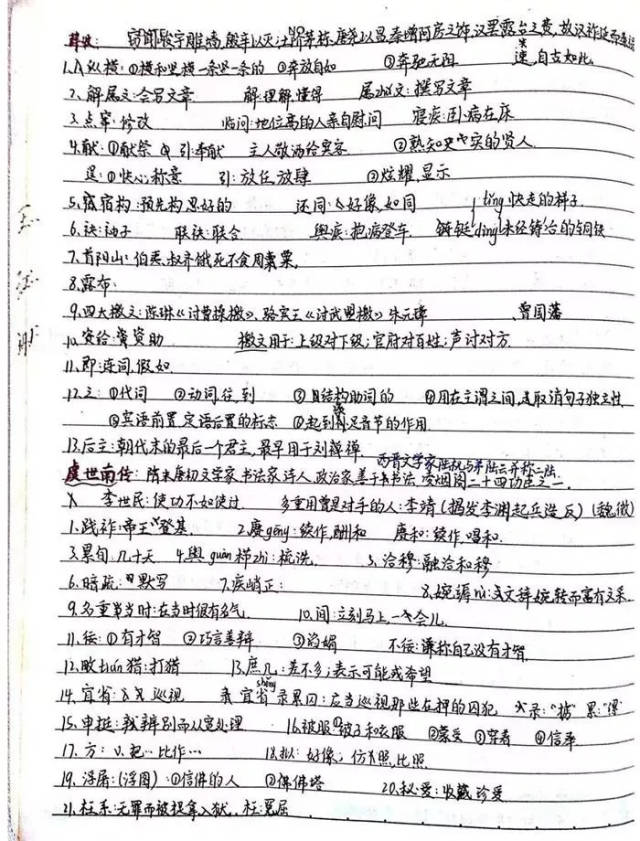 窃闻峻宇雕墙,殷辛以灭;土阶茅栋,唐尧以昌.秦增阿房之饰,汉罢露台之费,故汉祚延而秦
速,自古如此.
1.纵横:①横和竖横一条竖一条的 ②奔放自如 ③奔驰无阻
2.解属文:会写文章 解:理解懂得 属:撰写文章
3.点窜:修改 临问:地位高的人亲自慰问 寝疾:卧病在床
4.献:①献祭 引:奉献 主人敬酒给宾客 ②熟知史实的贤人
逞:①快心;称意 引:放任,放肆 ②炫耀,显示
5.宿构:预先构思好的 还同:好像,如同 tǐng 快走的样子
6.袂:袖子 联袂:联合 舆疾:抱病登车 铤dìng 未经铸冶的铜铁
7.首阳山:伯夷,叔齐饿死不食周粟.
8.露布.
9.四大檄文:陈琳《讨曹操檄》、骆宾王《讨武曌檄》朱元璋 、曾国藩
10.资给:资助 檄文用于:上级对下级;官府对百姓;声讨对方.
11.即:连词,假如
12.之:①代词 ②动词,往,到 ③结构助词的 ④用在主谓之间,取消句子独立性
⑤宾语前置,定语后置的标志 ⑥起到补足音节的作用
13.后主:朝代末的最后一个君主,最早用于刘禅
西晋文学家陆机与弟陆云并称二陆.
虞世南传:隋末唐初文学家.书法家.诗人.政治家.善于书法.凌烟阁二十四功臣之一.
李世民:使功不如使过. 多重用曾是对手的人:李靖(揭发李渊起兵造反)(魏徵)
1.践祚:帝王登基. 2.赓gēng:续作,酬和 赓和:续作,唱和.
3.累旬:几十天 4.盥guàn栉zhì:梳洗. 5.洽穆:融洽和穆
6.暗疏:默写 7.疾峭正: 8.婉缛rù:文辞婉转而富有文采
9.名重当时:在当时很有名气. 10.间:立刻马上,一会儿
11.佞:①有才智 ②巧言善辩 ③谄媚 不佞:谦称自己没有才智
12.畋tián猎:打猎 13.庶几:差不多;表示可能或希望
14.省:巡视 宜省shěng录累囚:应当巡视那些在押的囚犯
15.申挺:辨别而从宽处理 16.被服①被子和衣服 ②蒙受 ③穿着
17.方:把…比作… 18.拟:好像,仿照,比照
19.浮屠:(浮图):①信佛的人 ②佛塔 20.秘爱:收藏,珍爱
21.枉系:无罪而被捉拿入狱. 枉:冤屈